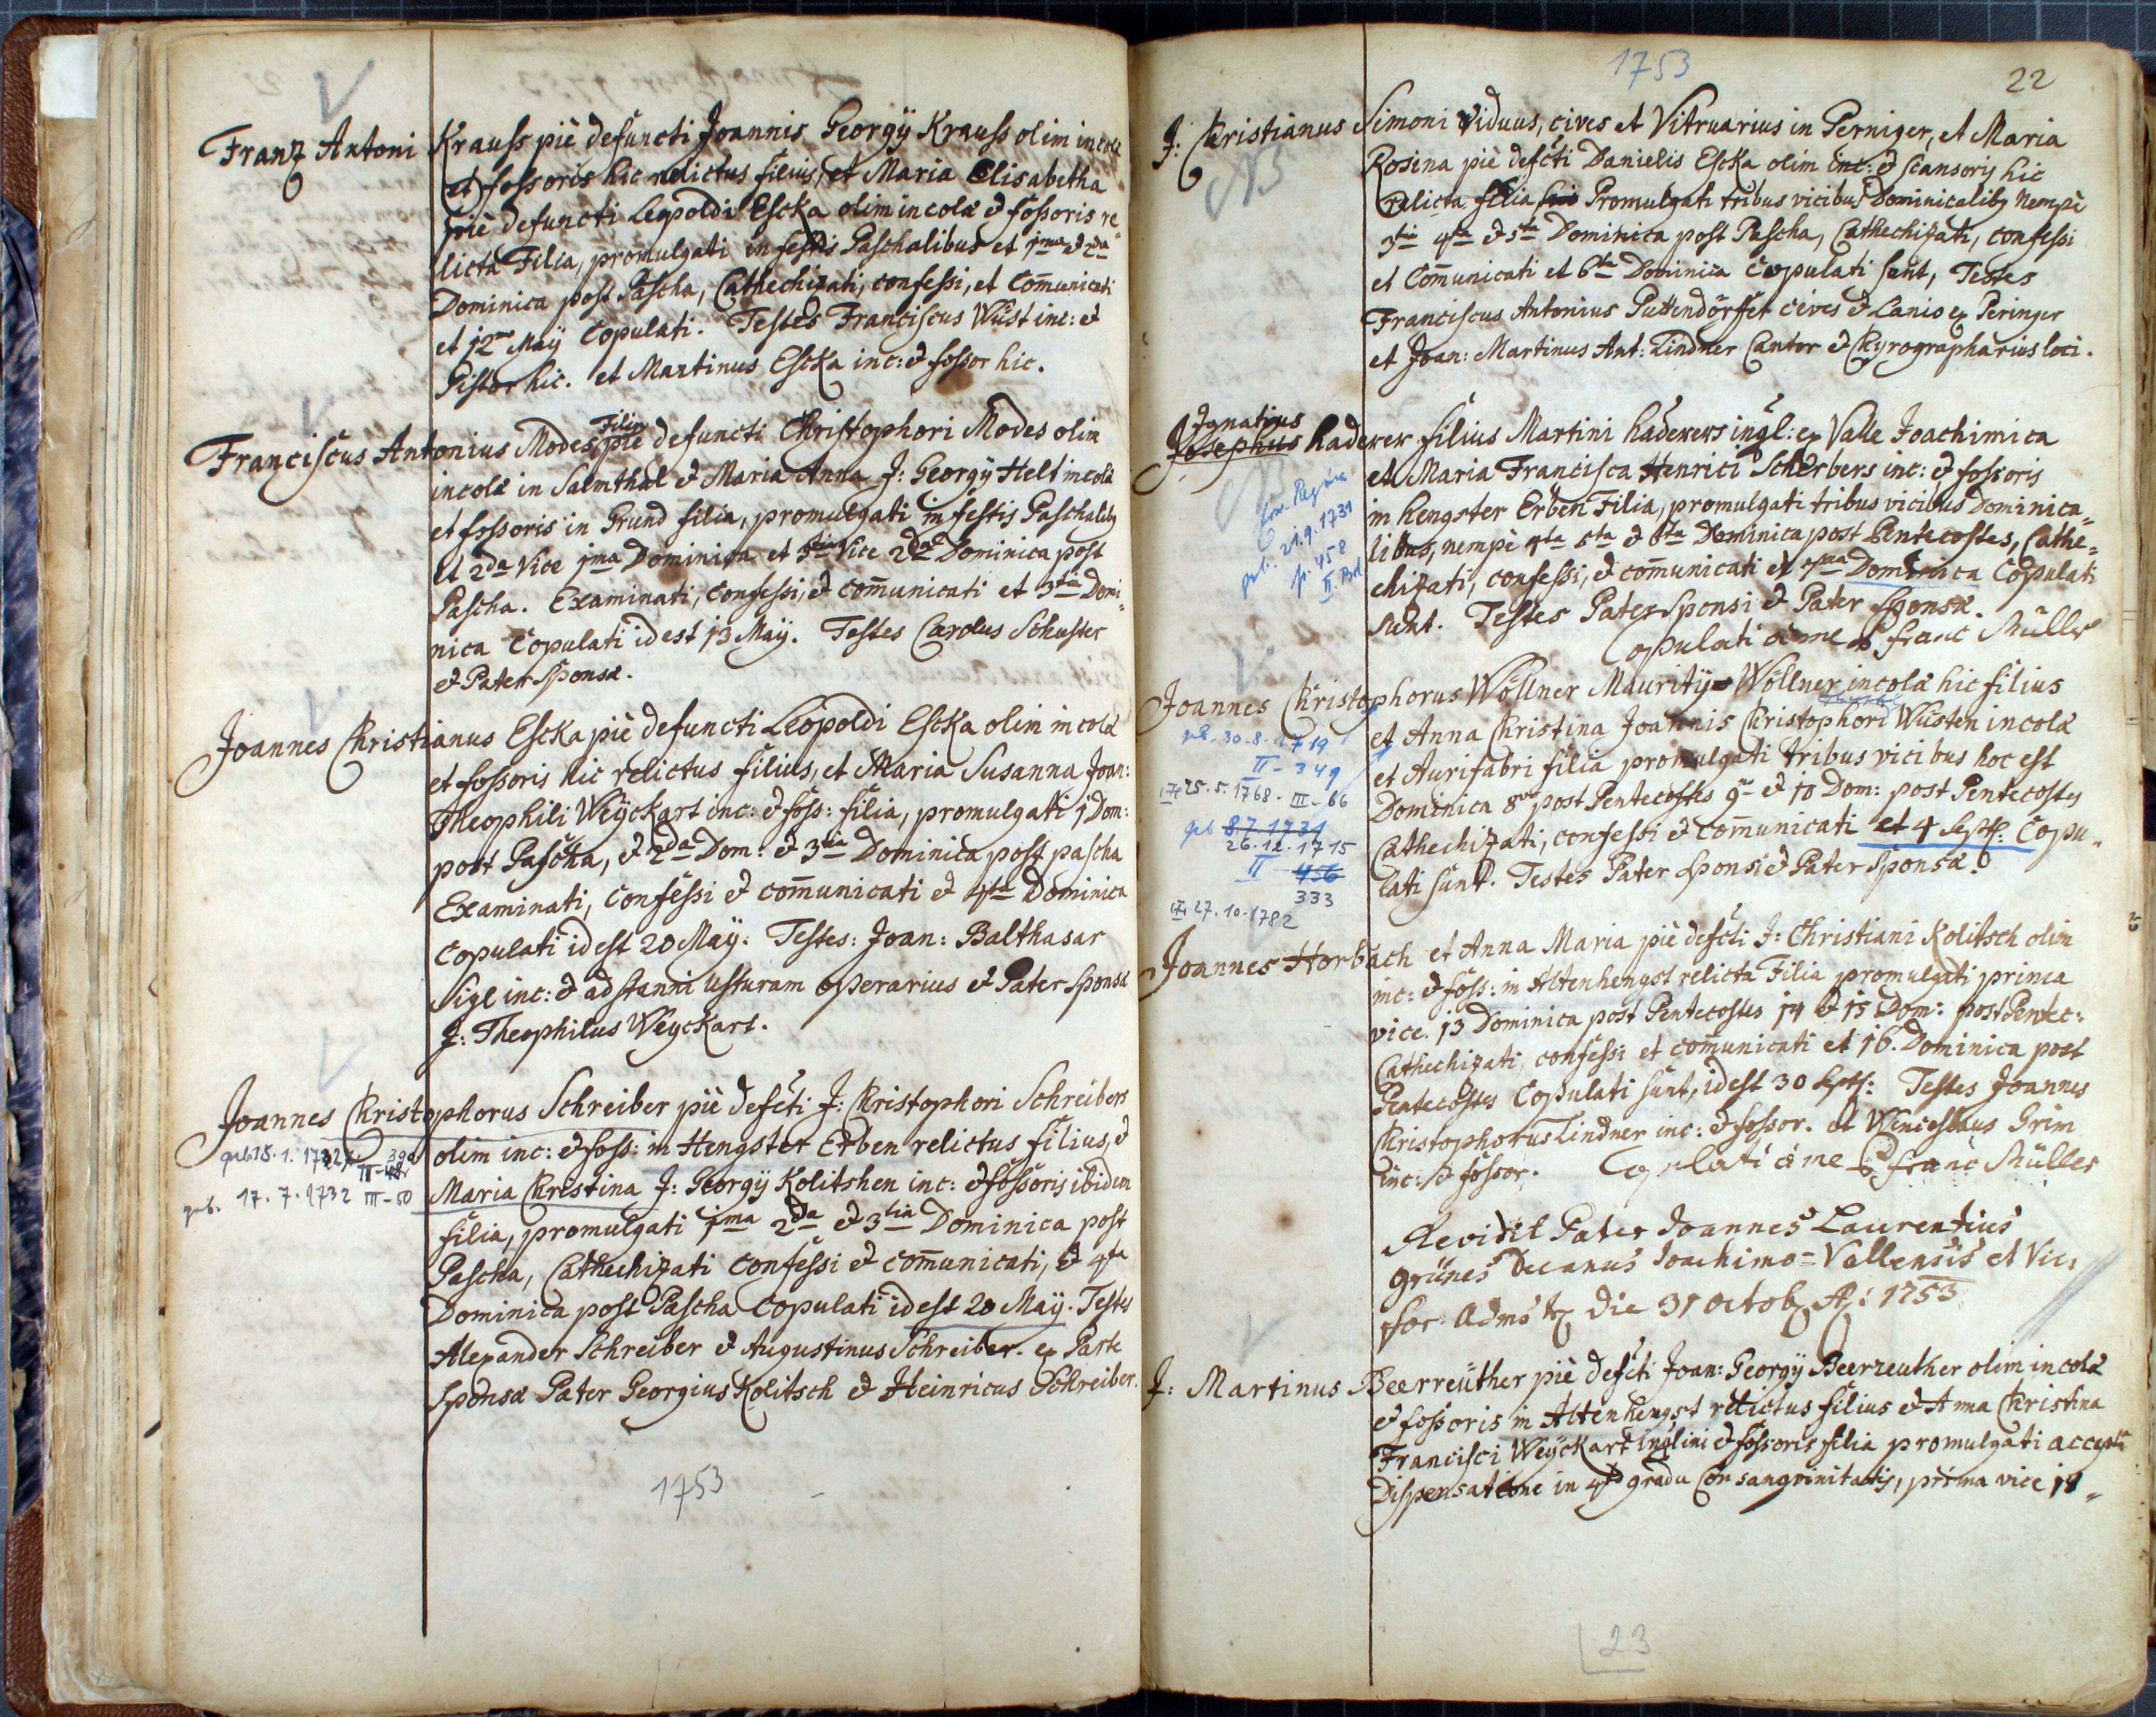 Franz Antoni Krauss piè defuncti Joannis Georgÿ Krauss olim incolæ
et fossoris hic relictus filius, et Maria Elisabetha
piè defuncti Leopoldi Escka olim incolæ & fossoris re„
licta Filia, promulgati in festis Paschalibus et 1ma & 2da
Dominica post Pascha, Cathechizati, confessi, et Com̄unicati
et 12ma Maÿ Copulati. Testes Franciscus Wüst inc: &
Pistor hic. et Martinus Escka inc: & fossor hic.
Franciscus Antonius Modes Filius piè defuncti Christophori Modes olim
incolæ in Salmthal & Maria Anna J: Georgÿ Helt incolæ
et fossoris in Grund filia, promulgati in festis Paschalibȝ
et 2da Vice 1ma Dominica et 3tia Vice 2da Dominica post
Pascha. Examinati, Confessi, & com̄unicati et 3tia Domi„
nica Copulati id est 13 Maÿ. Testes Carolus Schuster
& Pater Sponsæ.
Joannes Christianus Escka piè defuncti Leopoldi Escka olim incolæ
et fossoris hic relictus filius, et Maria Susanna Joan:
Theophili Weÿckart inc: & foss: filia, promulgati 1 Dom:
post Pascha, & 2da Dom: & 3tia Dominica post pascha
Examinati, Confessi & com̄unicati & 4ta Dominica
Copulati id est 20 Maÿ. Testes: Joan: Balthasar
Sigl inc: & ad stanni usturam operarius & Pater Sponsæ
J: Theophilus Weyckart.
Joannes Christophorus Schreiber piè defcti J: Christophori Schreibers
olim inc: & foss: in Hengster Erben relictus filius, &
geb. 17.7.1732 III-50 Maria Christina J: Georgÿ Kolitshen inc: & fossoris ibidem
filia, promulgati 1ma 2da & 3tia Dominica post
Pascha, Cathechizati Confessi & com̄unicati, & 4ta
Dominica post Pascha Copulati id est 20 Maÿ. Testes
Alexander Schreiber & Augustinus Schreiber. ex Parte
Sponsæ Pater Georgius Kolitsch & Heinricus Schreiber.
1753
1753
22
J: Christianus Simoni Viduus, cives et Vitruarius in Perniger, et Maria
NB
Rosina piè defcti Danielis Escka olim inc: & scansoris hic
relicta filia Promulgati tribus vicibus Dominicalibȝ Nempè
3tia 4ta & 5ta Dominica post Pascha, Cathechizati, confessi
et Com̄unicati et 6ta Dominica Copulati sunt, Testes
Franciscus Antonius Puttendörffer cives & Lanio ex Peringer
et Joan: Martinus Ant: Lindner Cantor & Chyrographarius loci.
Ignatius
Josephus Haderer filius Martini Haderers ingl: ex Valle Joachimica
et Maria Francisca Henrici Scherbers inc: & fossoris
in Hengster Erben Filia, promulgati tribus vicibus Dominica„
21.9.1731
libus, nempè 4ta 5ta & 6ta Dominica post Pentecostes, Cathe„
p. 458
chizati, confessi, & com̄unicati et 7ma Dominica Copulati
sunt. Testes Pater Sponsi & Pater Sponsæ.
Copulati à me P. Franc Müller
Joannes Christophorus Wöllner Mauritÿ Wöllner incolæ hic filius
geb. 30.8.1719
et Anna Christina Joannis Christophori Wüsten incolæ
II-349
et Aurifabri filia promulgati tribus vicibus hoc est
25.5.1768-III-66
Dominica 8va post Pentecostes 9na & 10 Dom: post Pentecostes
geb 8.7.1731
26.12.1715
Cathechizati, confessi & com̄unicati et 4 Septf: Copu„
II 456
333
lati sunt. Testes Pater Sponsi & Pater Sponsæ.
27.10.1782
Joannes Horbach et Anna Maria piè defcti J: Christiani Kolitsch olim
inc: & foss: in Altenhengst relicta Filia promulgati prima
vice. 13 Dominica post Pentecostes 14 & 15 Dom: post Pentec:
Cathechizati, confessi et com̄unicati et 16. Dominica post
Pentecostes Copulati sunt, id est 30 Septf: Testes Joannes
Christophorus Lindner inc: & fossor. et Wenceslaus Grim
inc: & fossor. Copulati à me P Franc Müller
Revidit Pater Joannes Laurentius
Grünes Decanus Joachimo=Vallensis et Vic:
for: die 31 Octob A: 1753
J: Martinus Beerreüther piè defcti Joan: Georgÿ Beerreuther olim incolæ
& fossoris in Altenhengst relictus filius & Anna Christina
Francisci Weÿckart inglini & fossoris filia promulgati acceptâ
Dispensatione in 4to gradu Consangvinitatis, prima vice 18„
23